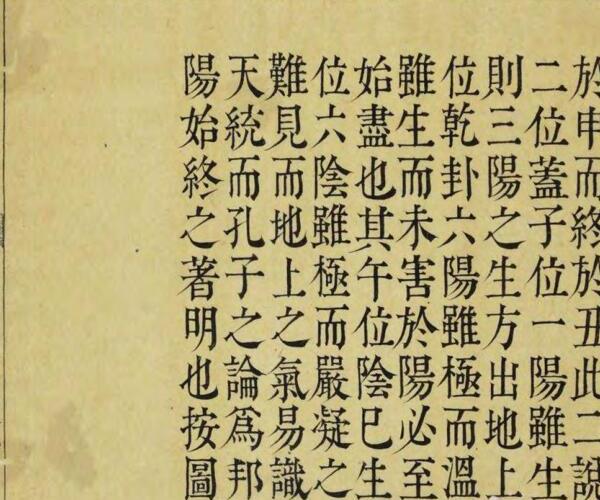 於申而終於丑此二說
二位蓋子位一陽雖生
則三陽之生方出地上
位乾卦六陽雖極而溫
雖生而未害於陽必至
始盡也其午位陰巳生
位六陰雖極而嚴凝之
難見而地上之氣易識
天統而孔子之論爲邦
陽始終之著明也按圖